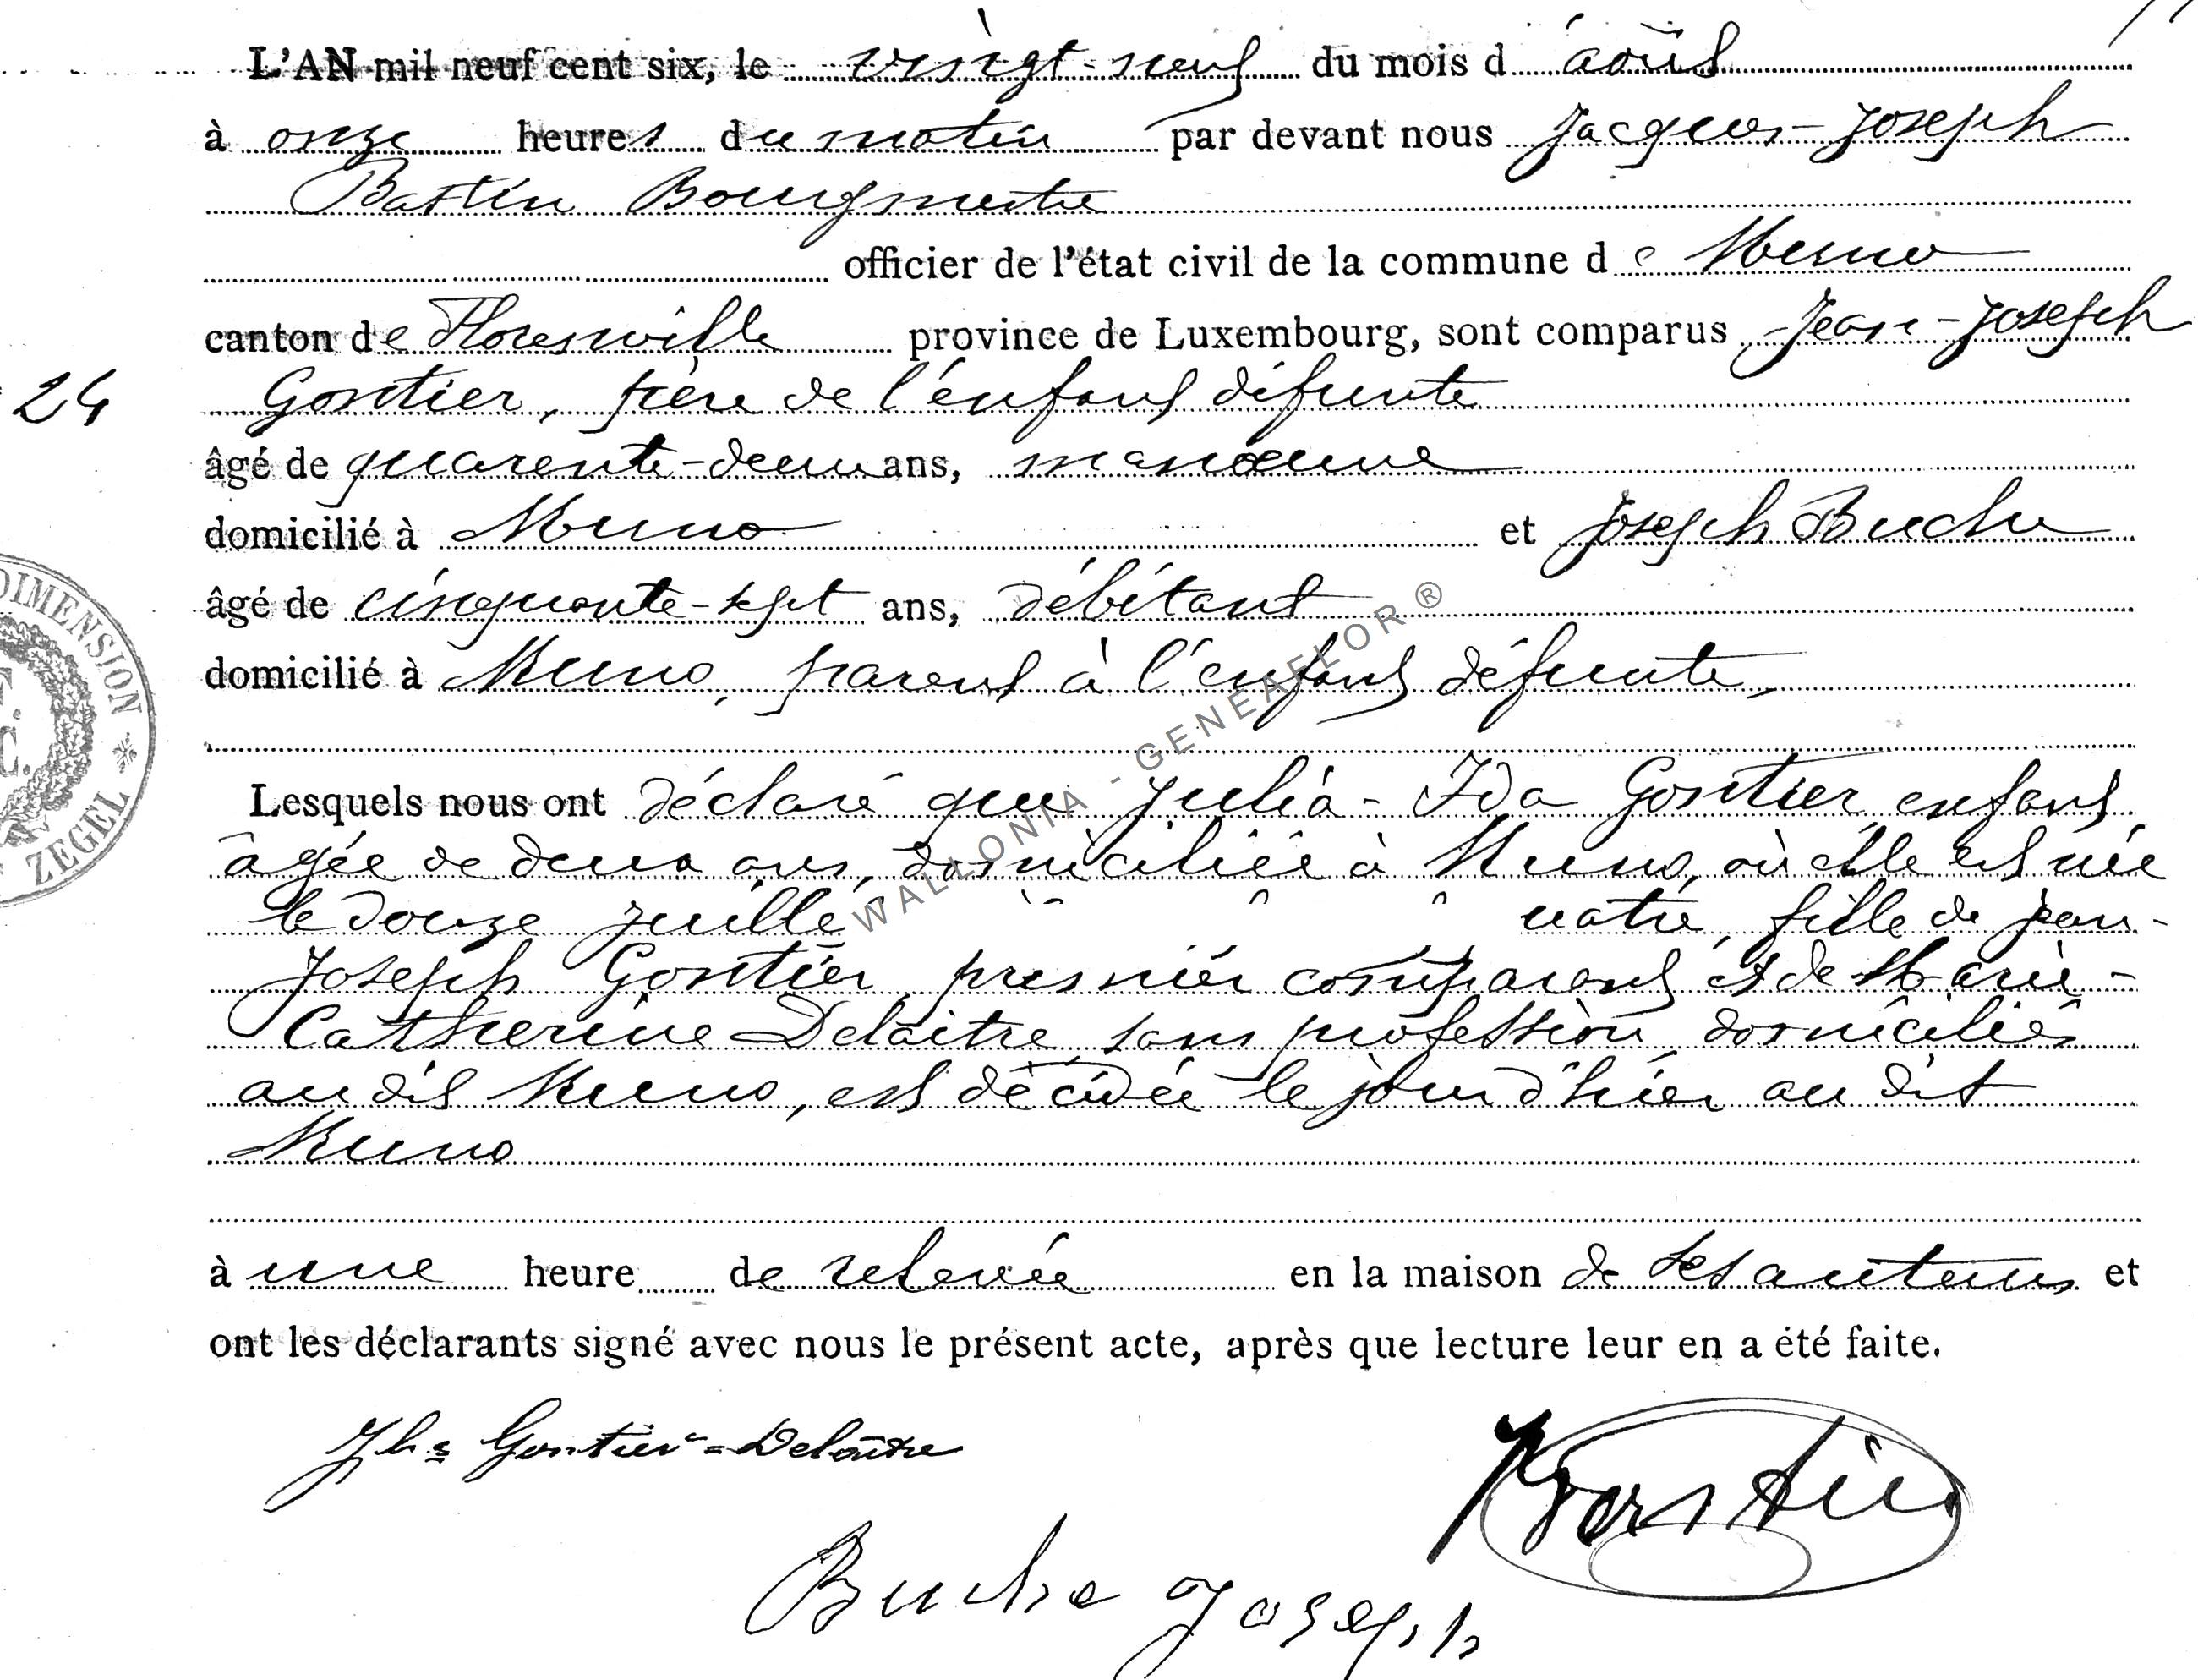 L'AN mil neuf cent six, le vingt-neuf du mois d'août
à onze heures du matin par devant nous Jacques-Joseph
Bastin Bourgmestre
officier de l'état civil de la commune de Muno
canton de Florenville province de Luxembourg, sont comparus Jean-Joseph
24 Gontier, père de l'enfant défunte
âgé de quarante-deux ans, manœuvre
domicilié à Muno et Joseph Buche
âgé de cinquante-sept ans, débitant
domicilié à Muno, parent à l'enfant défunte,
Lesquels nous ont déclaré que Julia-Ida Gontier enfant
âgée de deux ans, domiciliée à Muno, où elle est née
le douze juillet uatre, fille de Jean-
Joseph Gontier premier comparant et de Marie-
Catherine Delaitre sans profession domiciliés
au dit Muno, est décédée le jour d'hier au dit
Muno
à une heure de relevée en la maison de ses auteurs et
ont les déclarants signé avec nous le présent acte, après que lecture leur en a été faite.
Jh Gontier-Delaitre
Bastin
Buche Joseph
DIMENSION * ZEGEL
WALLONIA - GENEAFLOR ®